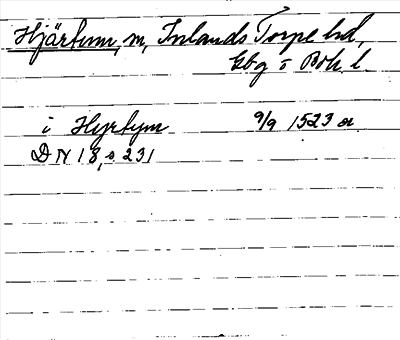 Hjärtum, sn, Inlands Torpe hd,
Gbg o Boh. l.
i Hyrtym 9/9 1523 or.
DN 18, s 231